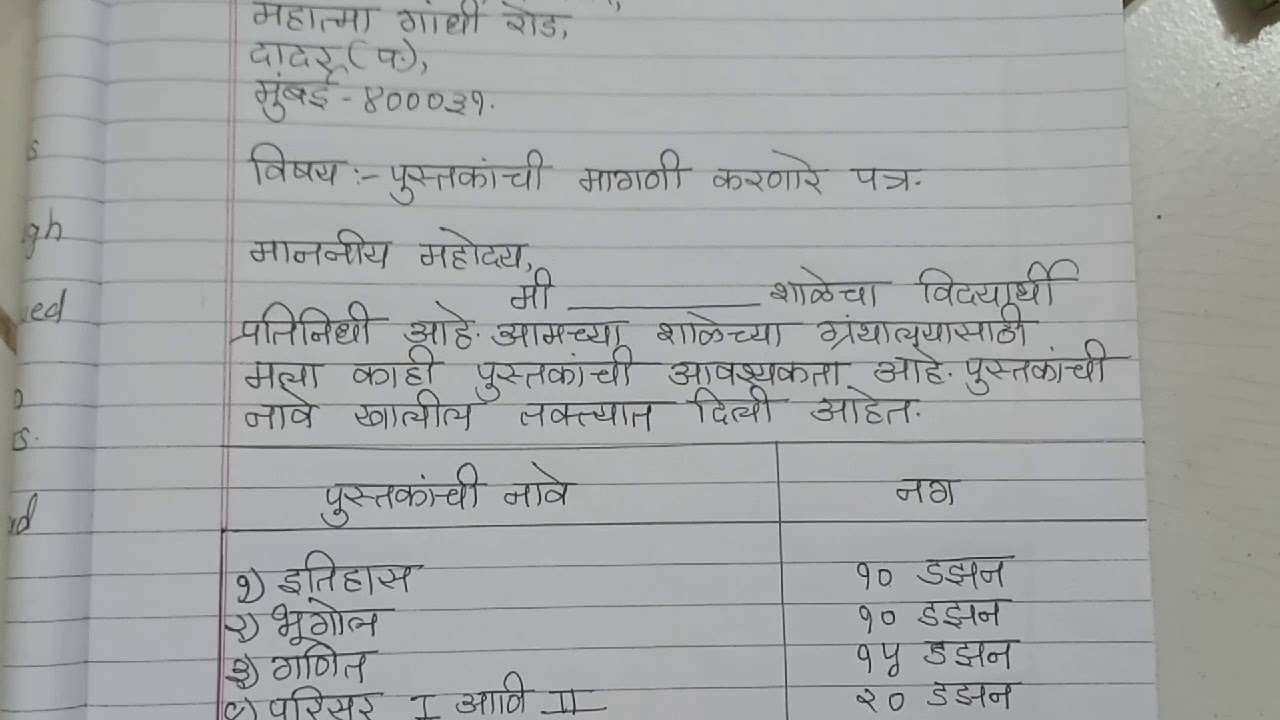 महात्मा गांधी रोड,
दादर (प.),
मुंबई - ४०००३१.
विषय :- पुस्तकांची मागणी करणारे पत्र.
माननीय महोदय,
मी ________ शाळेचा विद्यार्थी
प्रतिनिधी आहे. आमच्या शाळेच्या ग्रंथालयासाठी
मला काही पुस्तकांची आवश्यकता आहे. पुस्तकांची
नावे खालील तक्त्यात दिली आहेत.
पुस्तकांची नावे नग
१) इतिहास १० डझन
२) भूगोल १० डझन
३) गणित १५ डझन
४) परिसर I आणि II २० डझन
gh
ed